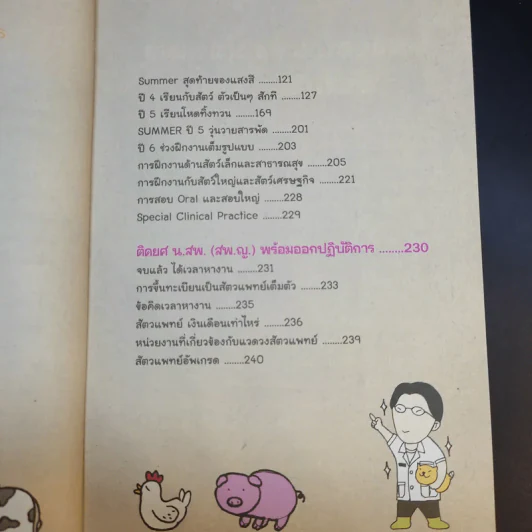 Summer สุดท้ายของแสงสี ........121
ปี 4 เรียนกับสัตว์ ตัวเป็นๆ สักที ........127
ปี 5 เรียนโหดทิ้งทวน ........169
SUMMER ปี 5 วุ่นวายสารพัด ........201
ปี 6 ช่วงฝึกงานเต็มรูปแบบ ........203
การฝึกงานด้านสัตว์เล็กและสาธารณสุข ........205
การฝึกงานกับสัตว์ใหญ่และสัตว์เศรษฐกิจ ........221
การสอบ Oral และสอบใหญ่ ........228
Special Clinical Practice ........229
ติดยศ น.สพ. (สพ.ญ.) พร้อมออกปฏิบัติการ ........230
จบแล้ว ได้เวลาหางาน ........231
การขึ้นทะเบียนเป็นสัตวแพทย์เต็มตัว ........233
ข้อคิดเวลาหางาน ........235
สัตวแพทย์ เงินเดือนเท่าไหร่ ........236
หน่วยงานที่เกี่ยวข้องกับแวดวงสัตวแพทย์ ........239
สัตวแพทย์อัพเกรด ........240